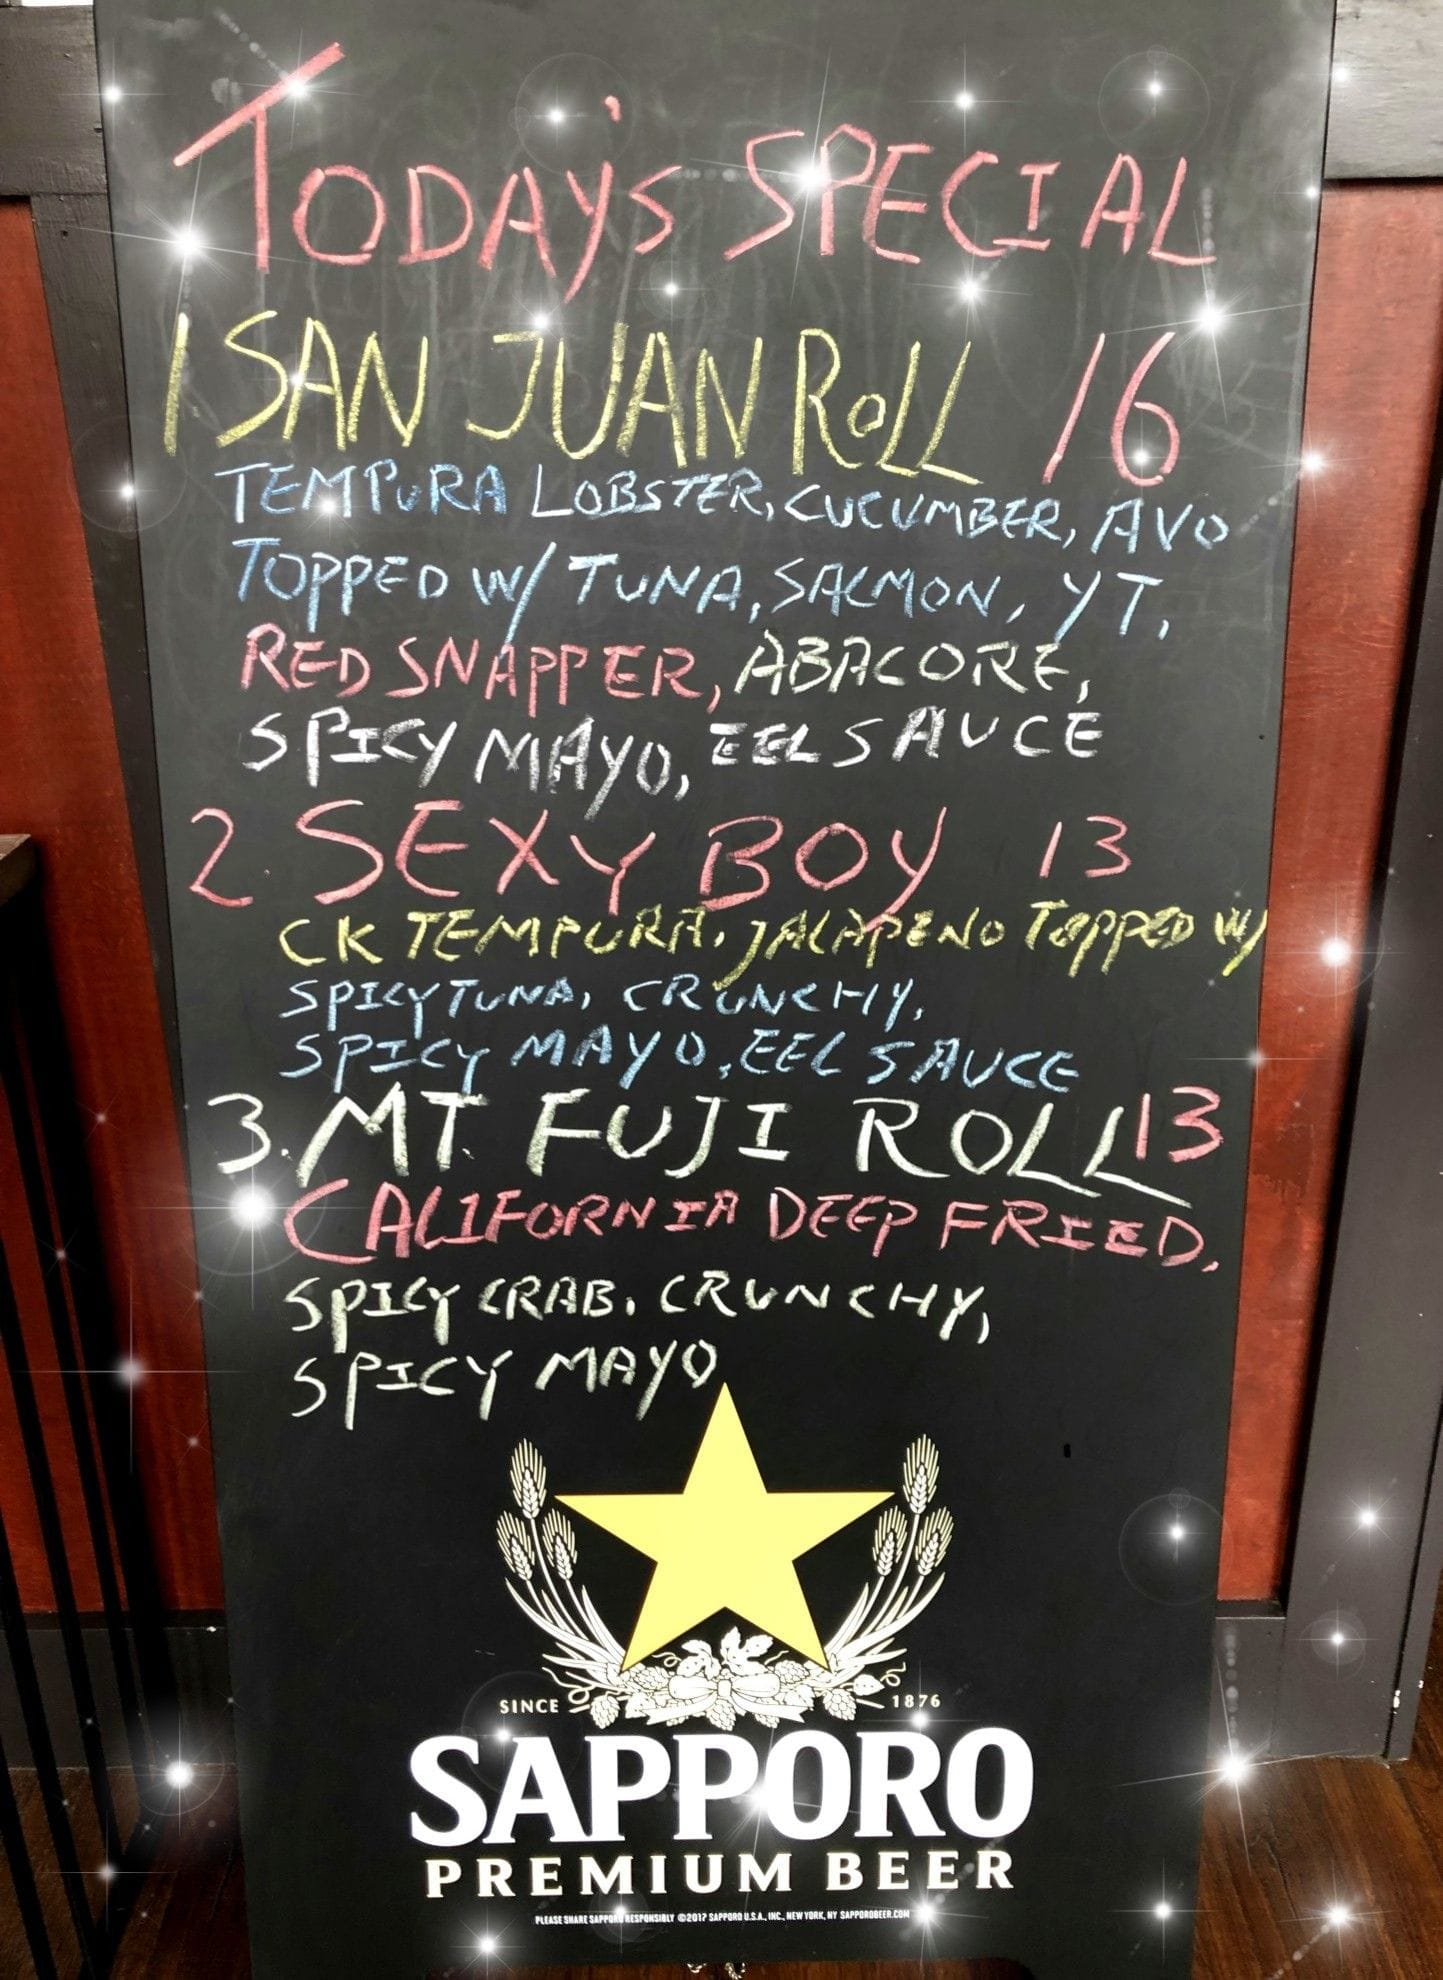 TODAY'S SPECIAL
1 SAN JUAN ROLL 16
TEMPURA LOBSTER, CUCUMBER, AVO
TOPPED W/ TUNA, SALMON, YT,
RED SNAPPER, ABACORE,
SPICY MAYO, EEL SAUCE
2. SEXY BOY 13
CK TEMPURA, JALAPENO TOPPED W/
SPICY TUNA, CRUNCHY,
SPICY MAYO, EEL SAUCE
3. MT. FUJI ROLL 13
CALIFORNIA DEEP FRIED,
SPICY CRAB, CRUNCHY,
SPICY MAYO
SINCE 1876
SAPPORO
PREMIUM BEER
PLEASE SHARE SAPPORO RESPONSIBLY ©2017 SAPPORO U.S.A., INC., NEW YORK, NY SAPPOROBEER.COM